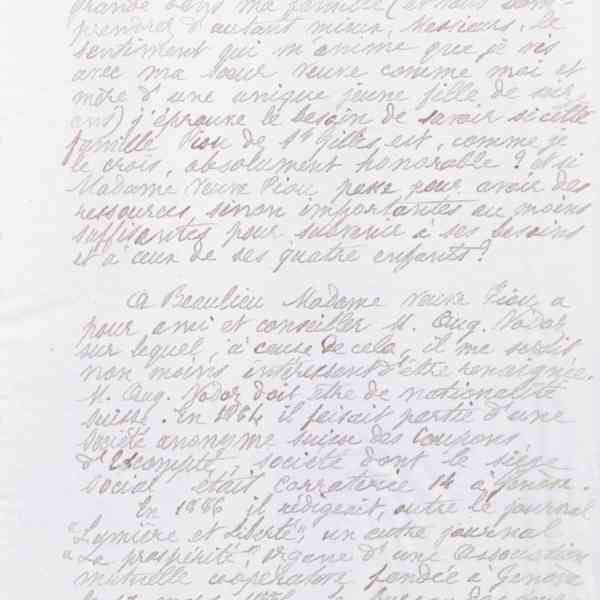 grande dans ma famille (et vous com-
prendrez d'autant mieux, Messieurs, le
sentiment qui m'anime que je vis
avec ma sœur veuve comme moi et
mère d'une unique jeune fille de seize
ans) j'éprouve le besoin de savoir si cette
famille Piou de St Gilles est, comme je
le crois, absolument honorable ? et si
Madame veuve Piou passe pour avoir des
ressources, sinon importantes au moins
suffisantes pour subvenir à ses besoins
et à ceux de ses quatre enfants ?
A Beaulieu Madame veuve Piou a
pour ami et conseiller M. Aug. Nodot
sur lequel, à cause de cela, il me serait
non moins intéressant d'être renseignée.
M. Aug. Nodot doit être de nationalité
suisse. En 1884 il faisait partie d'une
Société anonyme suisse des Coupons
d'Escompte, société dont le siège
social était Corraterie 14 à Genève.
En 1886 il rédigeait, outre le journal
"Lumière et Liberté", un autre journal
"La prospérité", organe d'une association
mutuelle coopérative fondée à Genève
mars